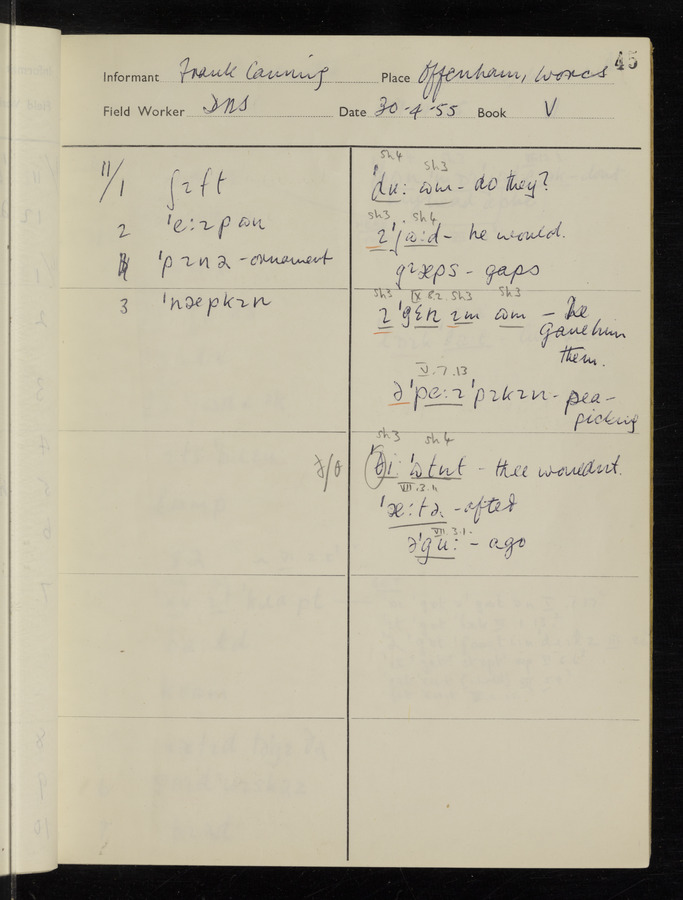 45
Informant Frank Canning Place Offenham, Worcs
Field Worker DRS Date 30-4-55 Book V
11/1 ʃɪft
2 ˈeːɪpɷn
ˈpɪnə - ornament
3 ˈnæpkɪn
sh4 sh3
ˈduː ɷm - do they?
sh3 sh4
ɪˈjɷːd - he would.
gɪæps - gaps
sh3 IX 8.2 sh3 sh3
ɪˈgɛn ɪm ɷm - he
gave him
them.
V.7.13
əˈpeːɪˈpɪkɪn - pea-
picking
sh3 sh4
ð/θ ˈðiː ˈɷtnt - thee wouldn't.
VII.3.11
ˈæːtə - after
VII 3.1.
əˈguː - ago